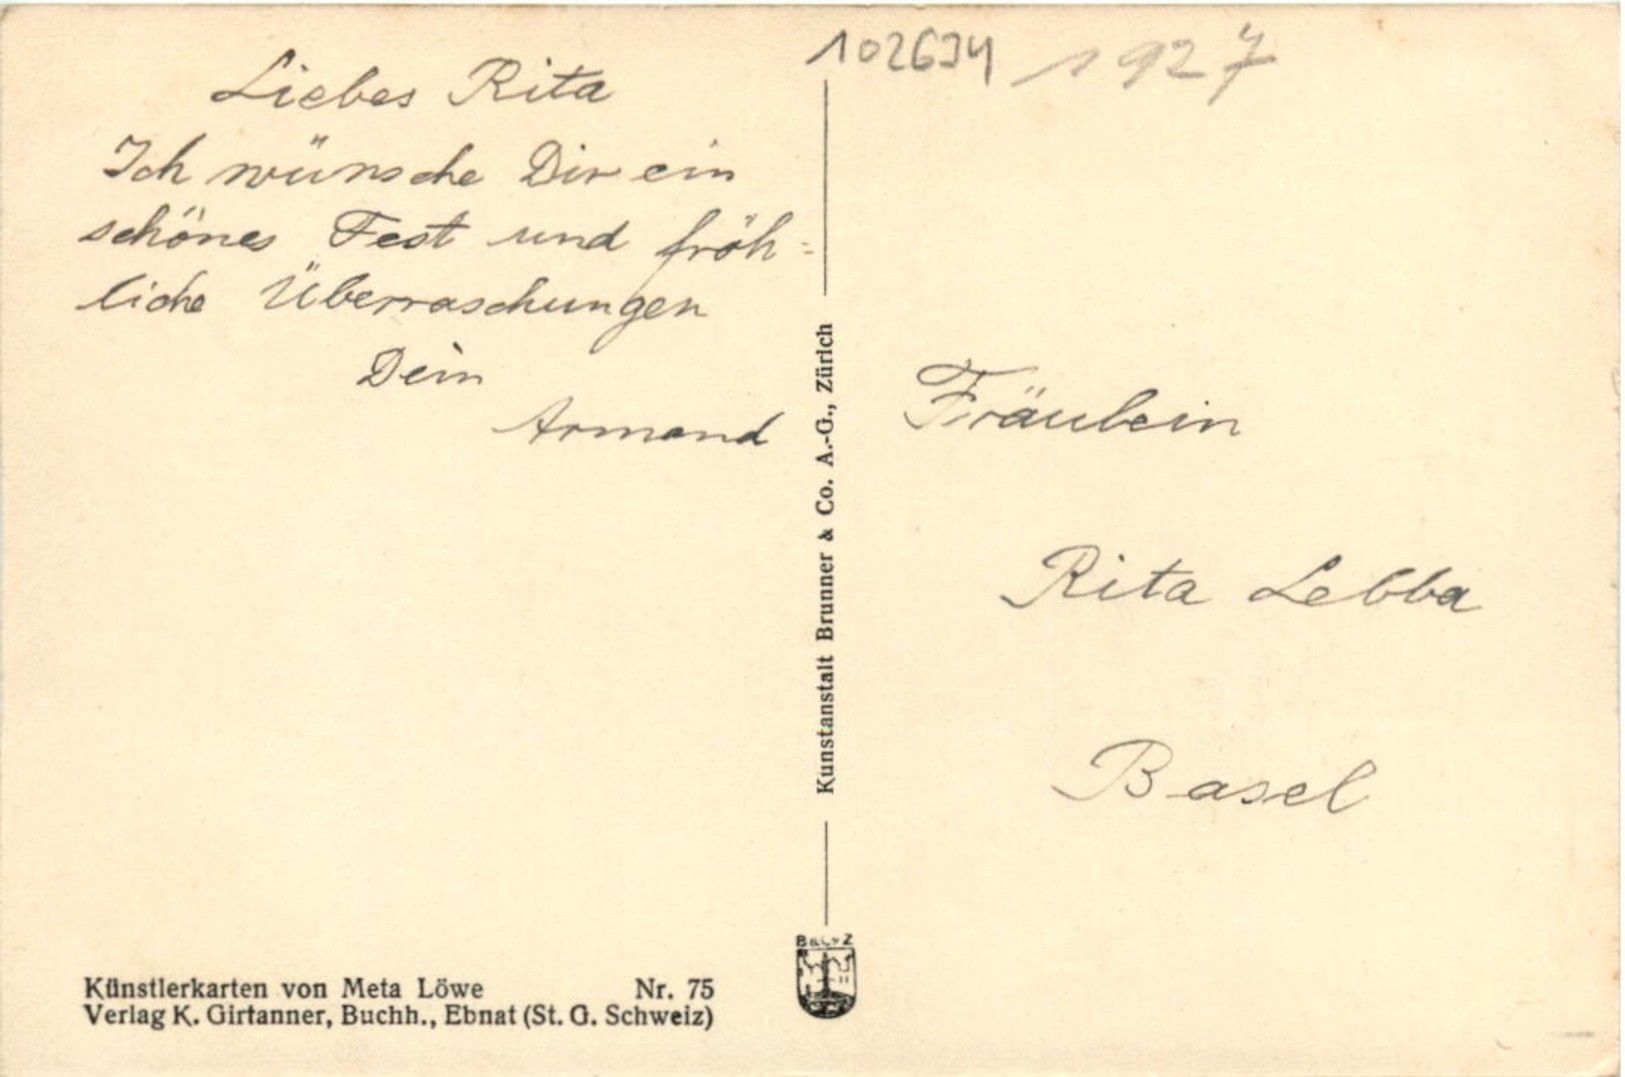 102634 1927
Liebes Rita
Ich wünsche Dir ein
schönes Fest und fröh=
liche Überraschungen
Dein
Armand
Kunstanstalt Brunner & Co. A.-G., Zürich
Fräulein
Rita Lebba
Basel
Künstlerkarten von Meta Löwe Nr. 75
Verlag K. Girtanner, Buchh., Ebnat (St. G. Schweiz)